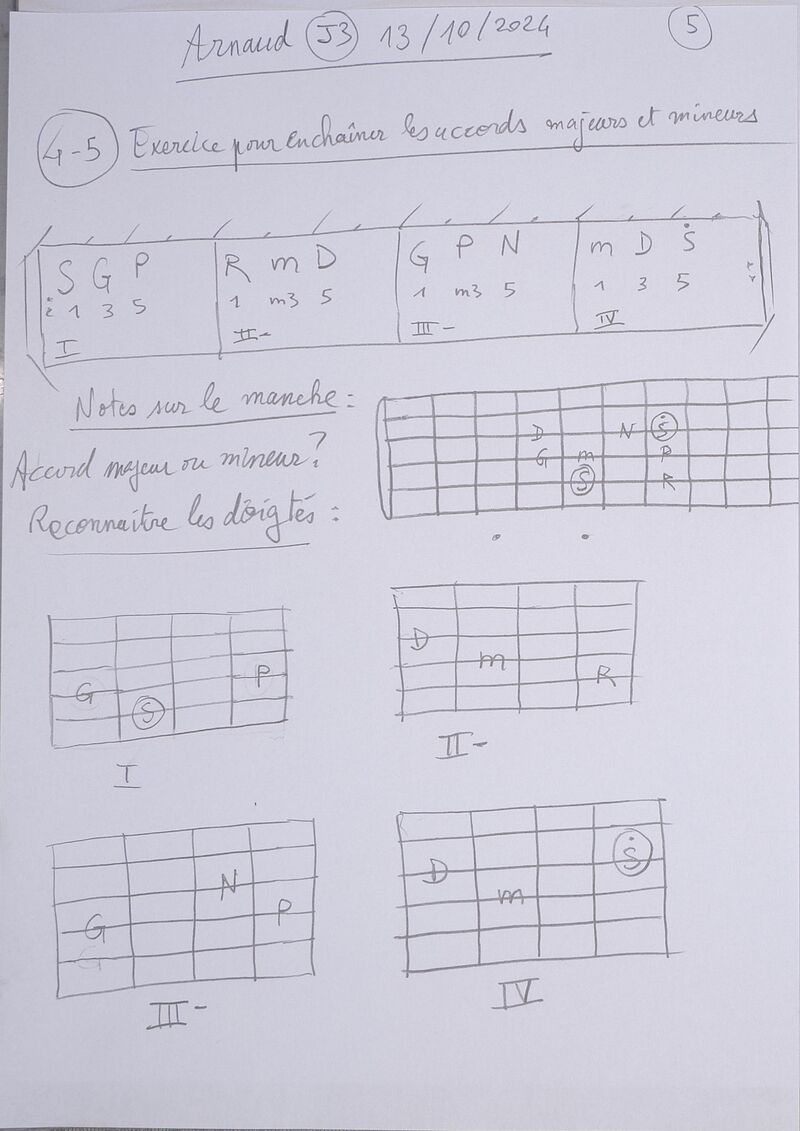 Arnaud J3 13/10/2024 5
4-5 Exercice pour enchaîner les accords majeurs et mineurs
S G P R m D G P N m D Ṡ
1 3 5 1 m3 5 1 m3 5 1 3 5
I II- III- IV
Notes sur le manche :
Accord majeur ou mineur ?
Reconnaître les doigtés :
D N Ṡ
G m P
S R
G S P
I
D m R
II-
G N P
III-
D m Ṡ
IV